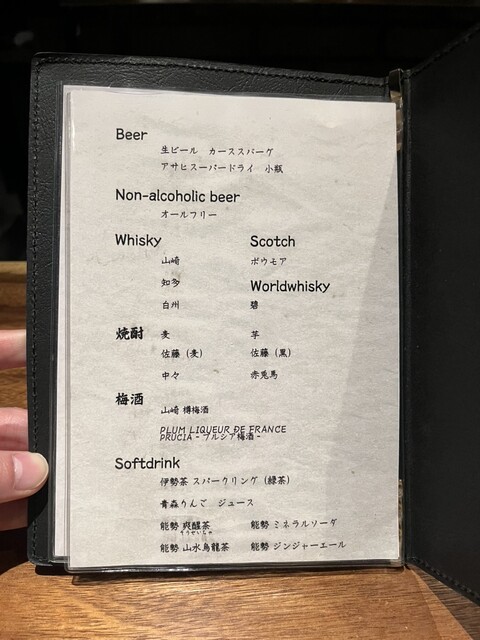 Beer
生ビール カーススパーゲ
アサヒスーパードライ 小瓶
Non-alcoholic beer
オールフリー
Whisky Scotch
山崎 ボウモア
知多 Worldwhisky
白州 碧
焼酎 麦 芋
佐藤（麦） 佐藤（黒）
中々 赤兎馬
梅酒
山崎 樽梅酒
PLUM LIQUEUR DE FRANCE
PRUCIA - プルシア梅酒 -
Softdrink
伊勢茶 スパークリング（緑茶）
青森りんご ジュース
能勢 爽醒茶 能勢 ミネラルソーダ
そうせいちゃ
能勢 山水烏龍茶 能勢 ジンジャーエール